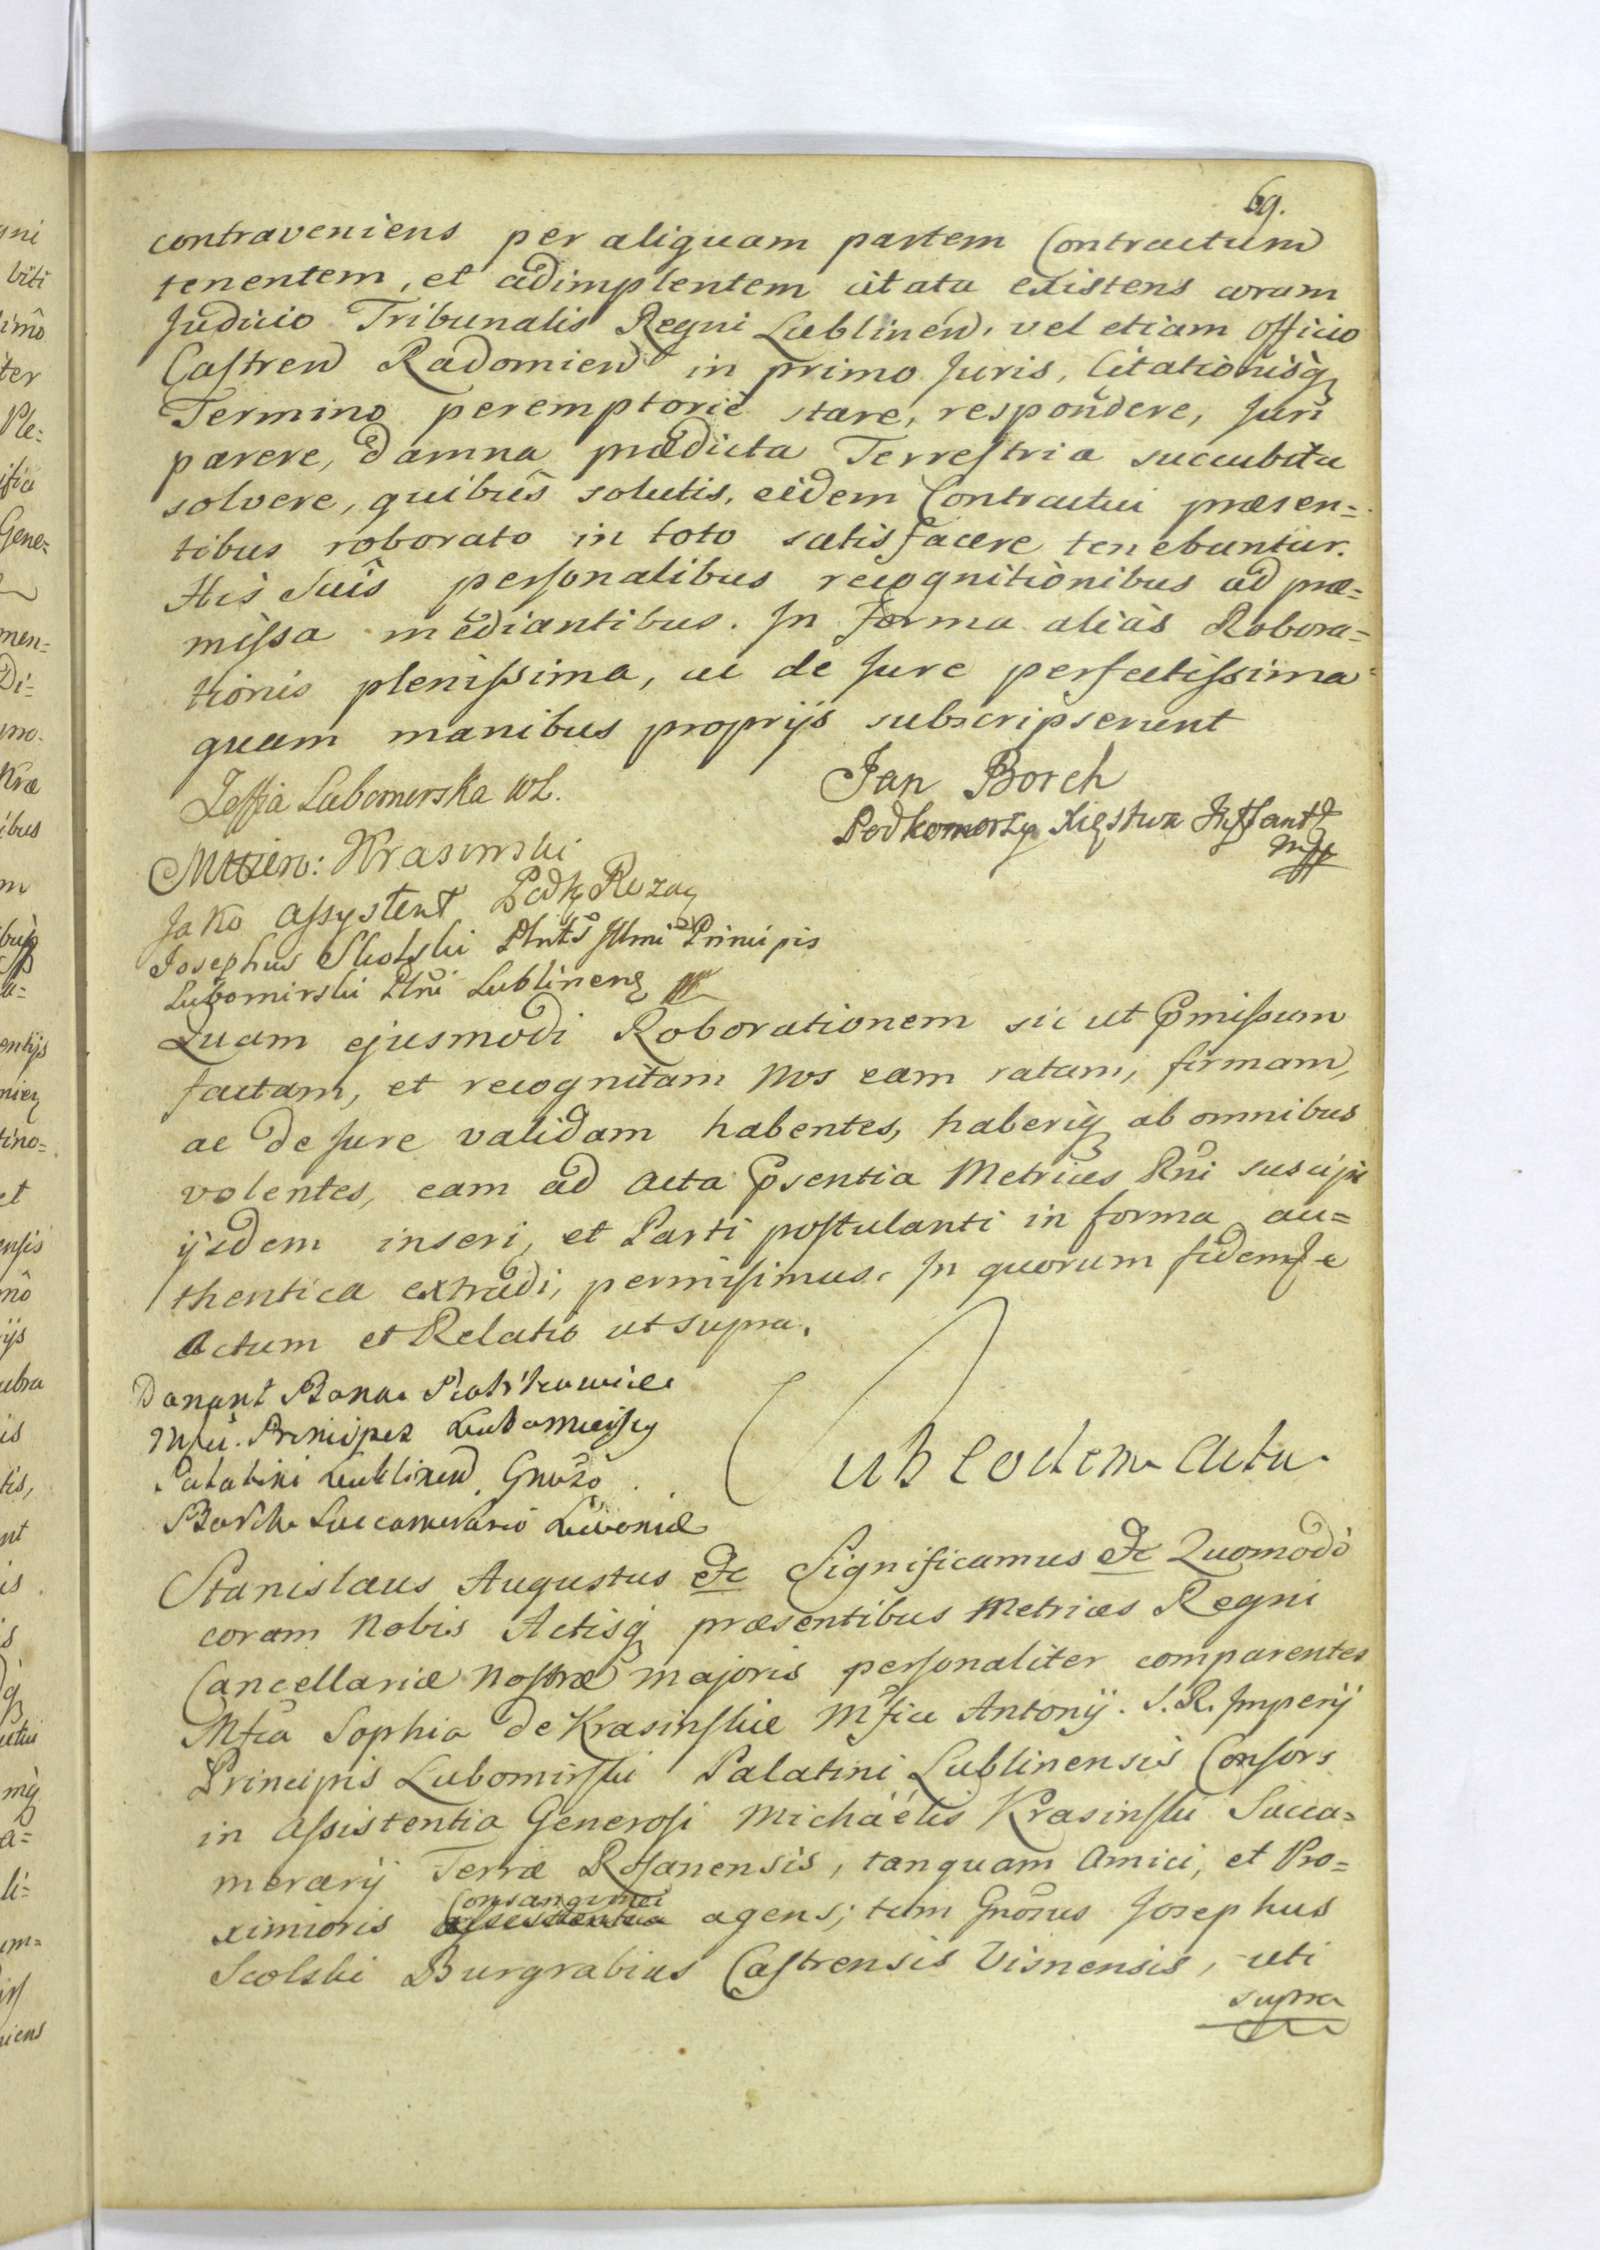 69.
contraveniens per aliquam partem Contractum
tenentem, et adimplentem citata existens coram
Judicio Tribunalis Regni Lublinen, vel etiam Officio
Castren Radomien in primo Juris, Citationisq
Termino peremptorie stare, respondere, Juri
parere, damna prædicta Terrestria succubita
solvere, quibus solutis, eidem Contractui præsen=
tibus roborato in toto satisfacere tenebuntur.
His Suis personalibus recognitionibus ad præ=
missa mediantibus. In forma alias Robora=
tionis plenissima, ac de Jure perfectissima
quam manibus proprijs subscripserunt
Zoffia Lubomirska WL.
Jan Borch
Podkomorzy Xięstwa Inflantt
mp
Krasinski
Jako assystent Podk Rozan
Josephus Skolski Plnts Illmi Principis
Lubomirski Plni Lublinen
Quam ejusmodi Roborationem sic ut pmissum
factam, et recognitam Nos eam ratam, firmam,
ac de Jure validam habentes, haberiq ab omnibus
volentes, eam ad Acta psentia Metrices Rni suscipi
ijsdem inseri, et Parti postulanti in forma au=
thentica extradi, permisimus. In quorum fidem
Actum et Relatio ut supra.
Principes
Palatini Lublinen. Gnoso
Borch Succamerario Livoniæ
Sub eodem Actu
Stanislaus Augustus &c Significamus &c Quomodo
coram Nobis Actisq præsentibus Metrices Regni
Cancellariæ Nostræ majoris personaliter comparentes
Mfca Sophia de Krasinskie Mfici Antonij S. R. Imperij
Principis Lubomirski Palatini Lublinensis Consors
in assistentia Generosi Michaelis Krasinski Succa=
merarij Terræ Rosanensis, tanquam Amici, et Pro=
Consangvinei
ximioris assistentia agens; tum Gnosus Josephus
Scolski Burgrabius Castrensis Visnensis, uti
supra